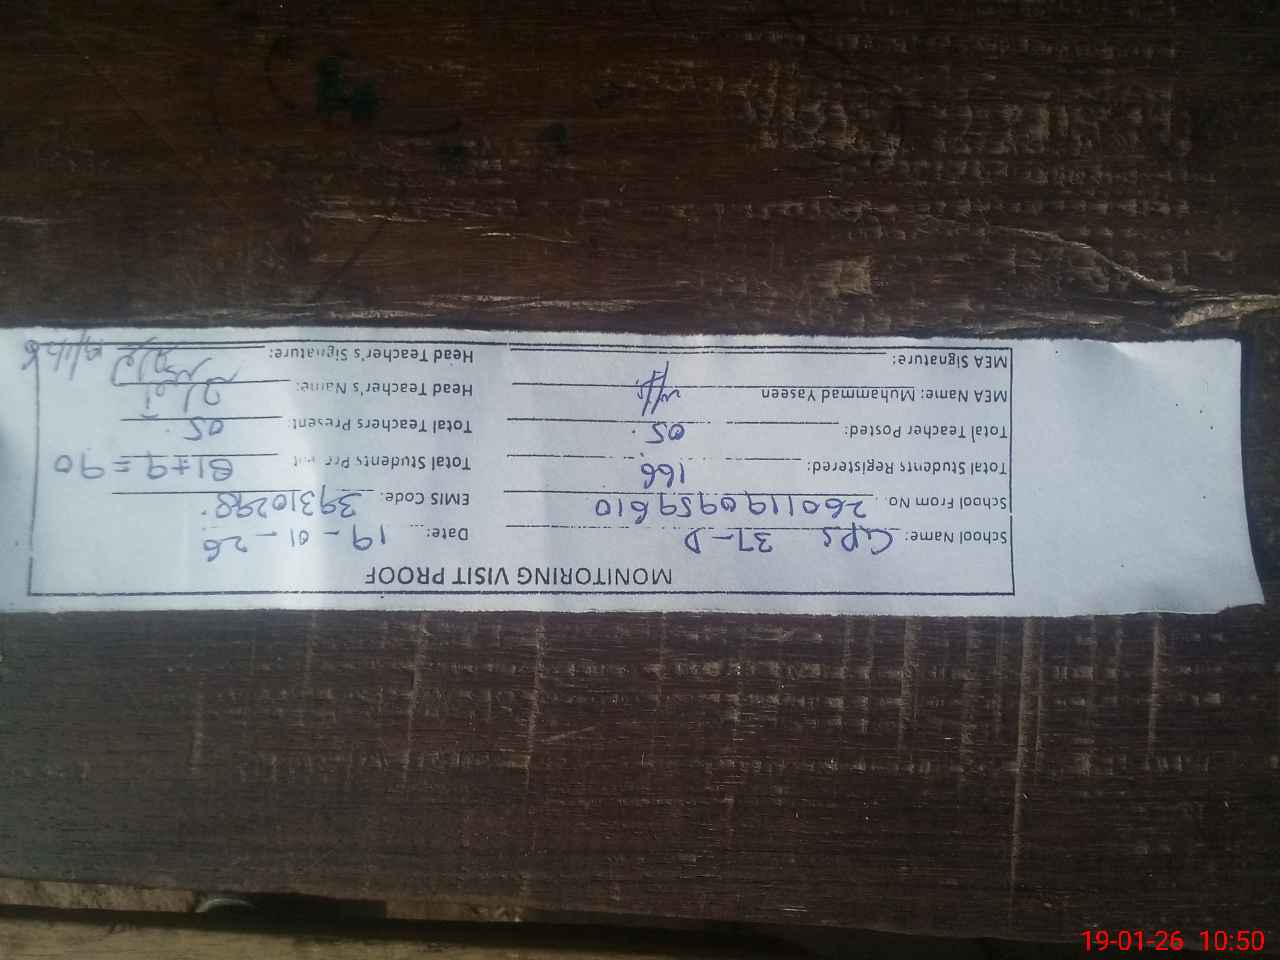 MONITORING VISIT PROOF
School Name: GPS 37-D Date: 19-01-26
School From No. 2601190959610 EMIS Code: 39310298.
Total Students Registered: 166 Total Students Present 81+9=90
Total Teacher Posted: 05. Total Teachers Present: 05.
MEA Name: Muhammad Yaseen Head Teacher's Name:
MEA Signature: Head Teacher's Signature:
19-01-26 10:50